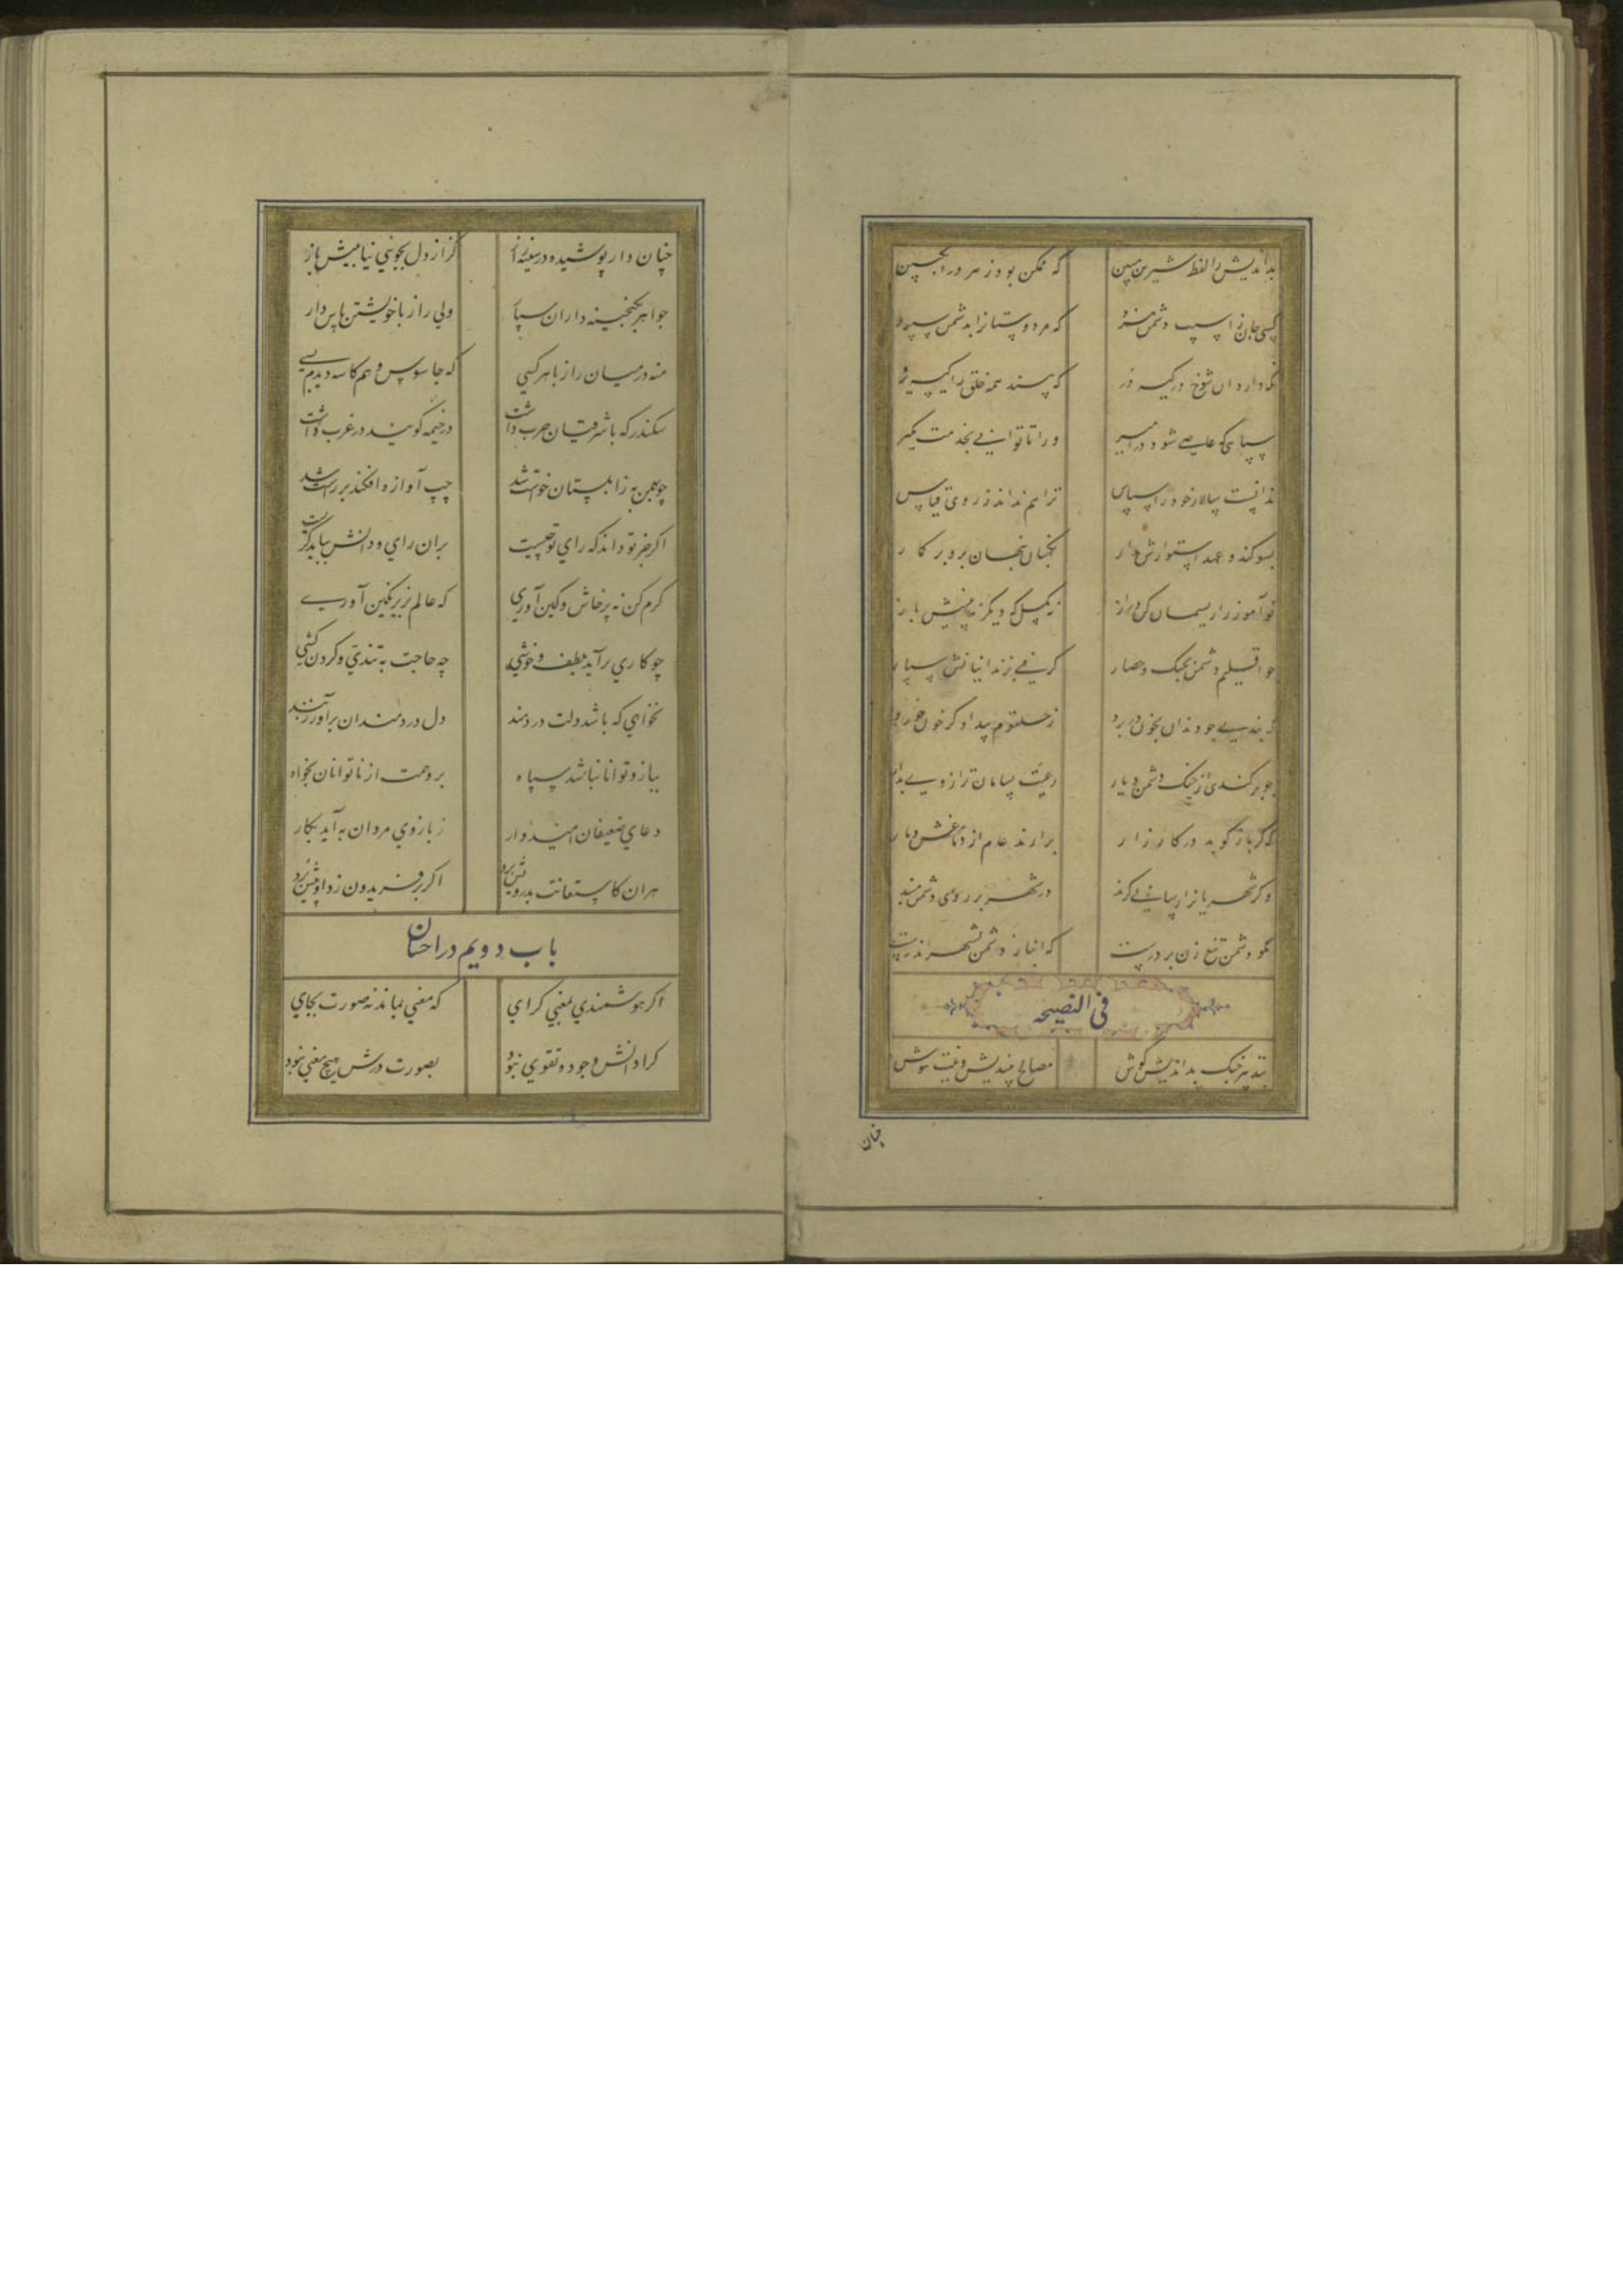 بداندیش را لفظ شیرین مبین
که ممکن بود زهر در انجبین
کسی جان ز اسیب دشمن ببرد
که مر دوستانرا بدشمن سپرد
نکه دارد ان شوخ در کیسه در
که پسند همه خلق را کیسه بر
سپاهی که عاصی شود در امیر
ورا تا توانی بخدمت مکیر
ندانست سالار خود را سپاس
ترا هم نداند ز روی قیاس
بسوکند و عهد استوارش مدار
نکهبان پنهان برو بر کمار
نو آموز را ریسمان کن دراز
نه بکسل که دیکر نه بینیش باز
جو اقلیم دشمن بجنک و حصار
کرفتی بزندانیانش سپار
که بندی جو دندان بخون در برد
ز حلقوم بیدادکر خون خورد
جو بر کندی از جنک دشمن دیار
رعیت بسامان تر از وی بدار
که کر باز کوبد در کارزار
برارند عام از دماغش دمار
وکر شهریانرا رسانی کزند
در شهر بر روی دشمن مبند
مکو دشمن تیغ زن بر درست
که انباز دشمن بشهر اندرست
فی النصیحه
بتدبیر جنک بداندیش کوش
مصالح بیندیش و نیت بپوش
چنان
چنان دار پوشیده در سینه راز
کز از دل بجویی نیابیش باز
جواهر بکنجینه داران سپار
ولی راز با خویشتن پاس دار
منه در میان راز با هر کسی
که جاسوس و هم کاسه دیدم بسی
سکندر که با شرقیان حرب داشت
در خیمه کویند در غرب داشت
چو بهمن به زابلستان خواست شد
چپ آوازه افکند بر راست شد
اکر جز تو داند که رای تو چیست
بران رای و دانش بباید کریست
کرم کن نه پرخاش و کین آوری
که عالم بزیر نکین آوری
چو کاری برآید بلطف و خوشی
چه حاجت به تندی و کردن کشی
نخواهی که باشد دلت دردمند
دل دردمندان برآور ز بند
ببازو توانا نباشد سپاه
برو همت از ناتوانان بخواه
دعای ضعیفان امیدوار
ز بازوی مردان به آید بکار
هران کاستعانت بدرویش برد
اکر بر فریدون زد او پیش برد
باب دویم در احسان
اکر هوشمندی بمعنی کرای
که معنی بماند نه صورت بجای
کرا دانش و جود و تقوی نبود
بصورت درش هیچ معنی نبود